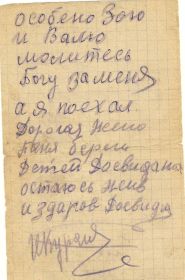 особено Зою
и Валю
молитесь
Богу заменя
а я поехал.
Дорогая Жено
Таня береги
Детей Досвидана
остаюсь жив
и здаров Досвидя